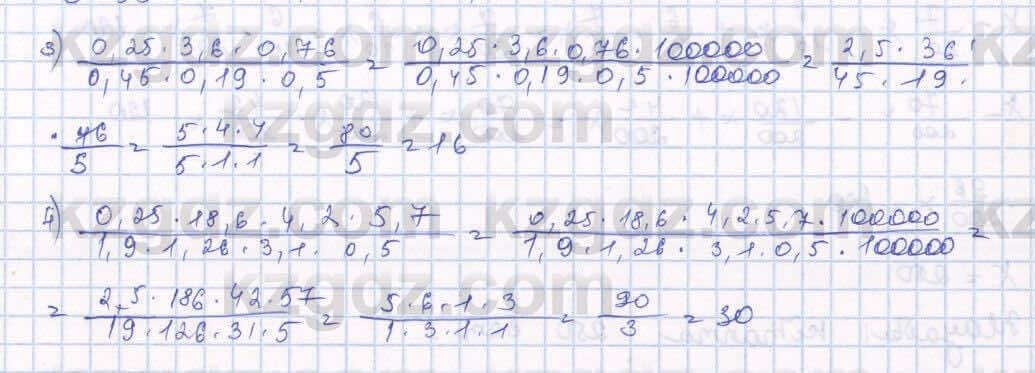 3) 0,25 · 3,6 · 0,76 / 0,45 · 0,19 · 0,5 = 0,25 · 3,6 · 0,76 · 100000 / 0,45 · 0,19 · 0,5 · 100000 = 2,5 · 36 / 45 · 19 ·
· 76 / 5 = 5 · 4 · 4 / 5 · 1 · 1 = 80 / 5 = 16
4) 0,25 · 18,6 · 4,2 · 5,7 / 1,9 · 1,26 · 3,1 · 0,5 = 0,25 · 18,6 · 4,2 · 5,7 · 100000 / 1,9 · 1,26 · 3,1 · 0,5 · 100000 =
= 2,5 · 186 · 42 · 57 / 19 · 126 · 31 · 5 = 5 · 6 · 1 · 3 / 1 · 3 · 1 · 1 = 90 / 3 = 30
kzgdz.com